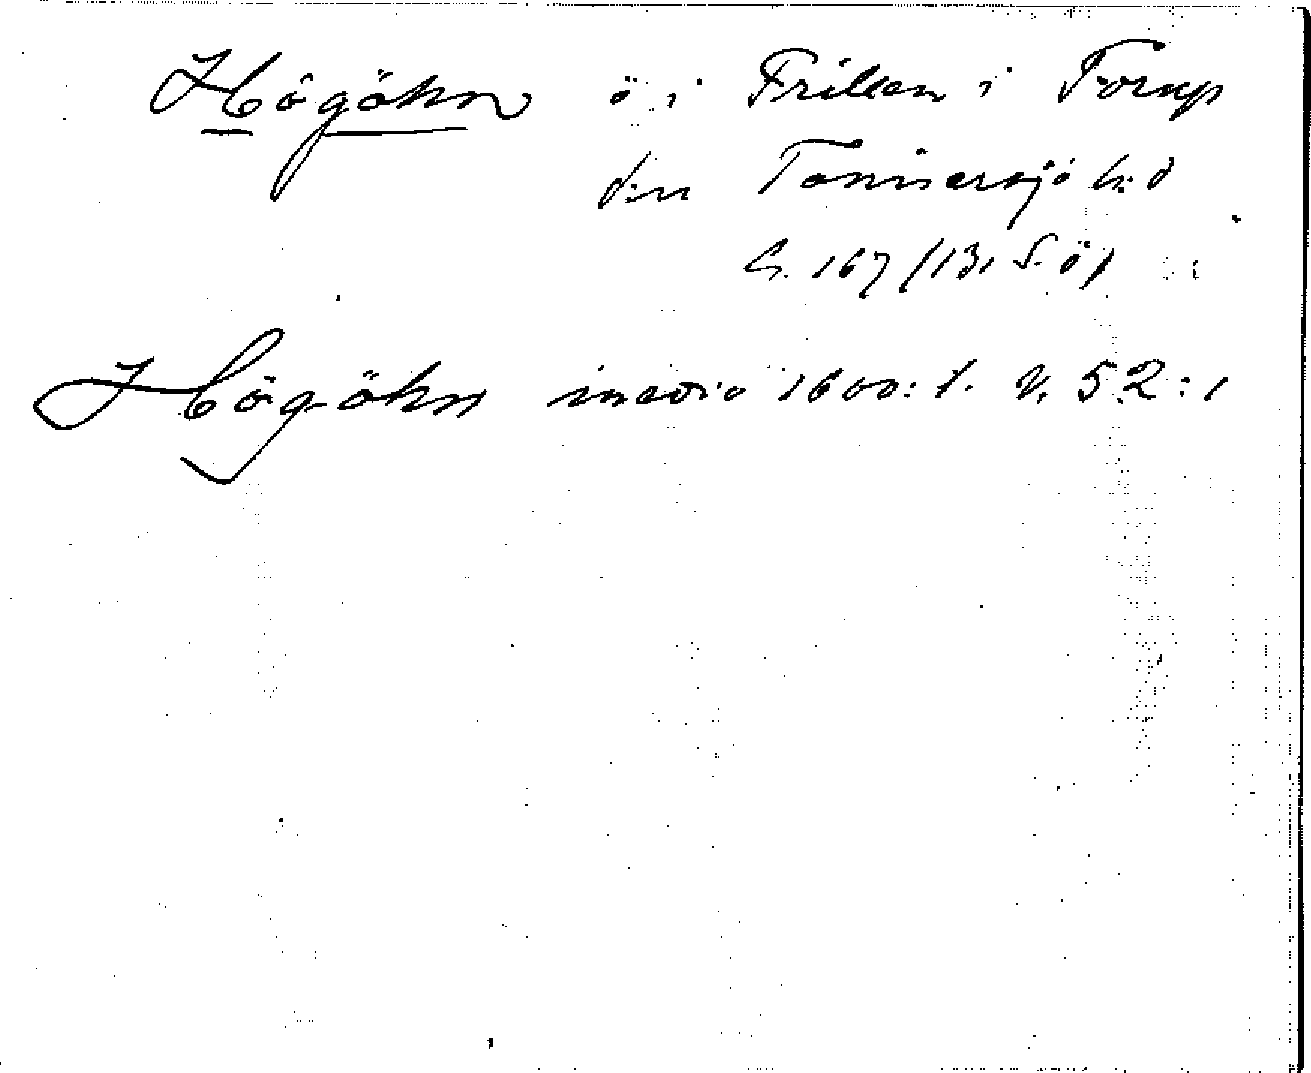 Högöhn ö i Frillen i Torup
sn Tönnersjö h:d
h. 167/131 S. öl
Högöhn medio 1600: t. 52:1